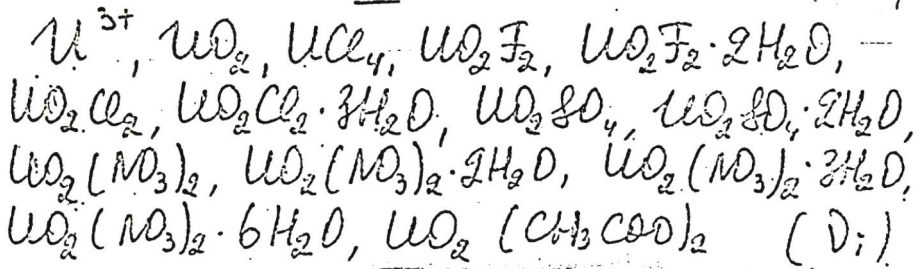 U³⁺, UO₂, UCl₄, UO₂F₂, UO₂F₂·2H₂O,
UO₂Cl₂, UO₂Cl₂·3H₂O, UO₂SO₄, UO₂SO₄·2H₂O,
UO₂(NO₃)₂, UO₂(NO₃)₂·2H₂O, UO₂(NO₃)₂·3H₂O,
UO₂(NO₃)₂·6H₂O, UO₂(CH₃COO)₂ (Di)